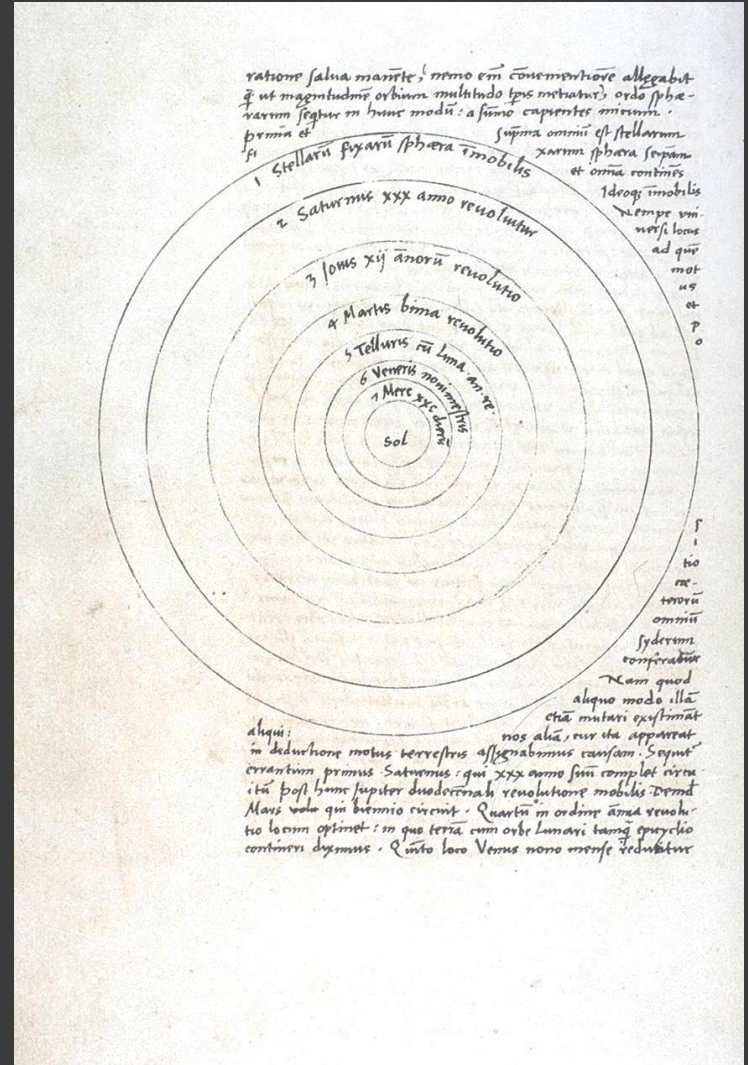 ratione salua manēte, nemo em̄ cōuenientiorē allegabit
q̄ ut magnitudinē orbium multitudo tp̄is metiatur, ordo sphæ-
rarum seq̄tur in hunc modū: a sūmo capientes initium.
prima et suprēma omniū est stellarum
fi xarum sphæra seip̄am
et omīa continēs
Ideoq; īmobilis
Nempe uni-
uersi locus
ad quē
mot
us
et
p
o
1 Stellarū fixarū sphæra īmobilis
2 Saturnus xxx anno reuoluitur
3 Iouis xij ānorū reuolutio
4 Martis bima reuolutio
5 Telluris cū Luna an. re.
6 Veneris nonimestris
7 Merc xxc dierū
Sol
s
i
tio
cæ-
terorū
omniū
syderum
conferatur
Nam quod
aliquo modo illā
etiā mutari existimāt
aliqui: nos aliā, cur ita appareat
in deductione motus terrestris assignabimus causam. Sequit̄
errantium primus Saturnus: qui xxx anno suū complet circu-
itū post hunc Iupiter duodecennali reuolutione mobilis. Deind̄
Mars qui biennio circuit. Quartū in ordine ānua reuolu-
tio locum optinet: in quo terrā cum orbe Lunari tamq̄ epicyclio
contineri diximus. Quinto loco Venus nono mense reducitur